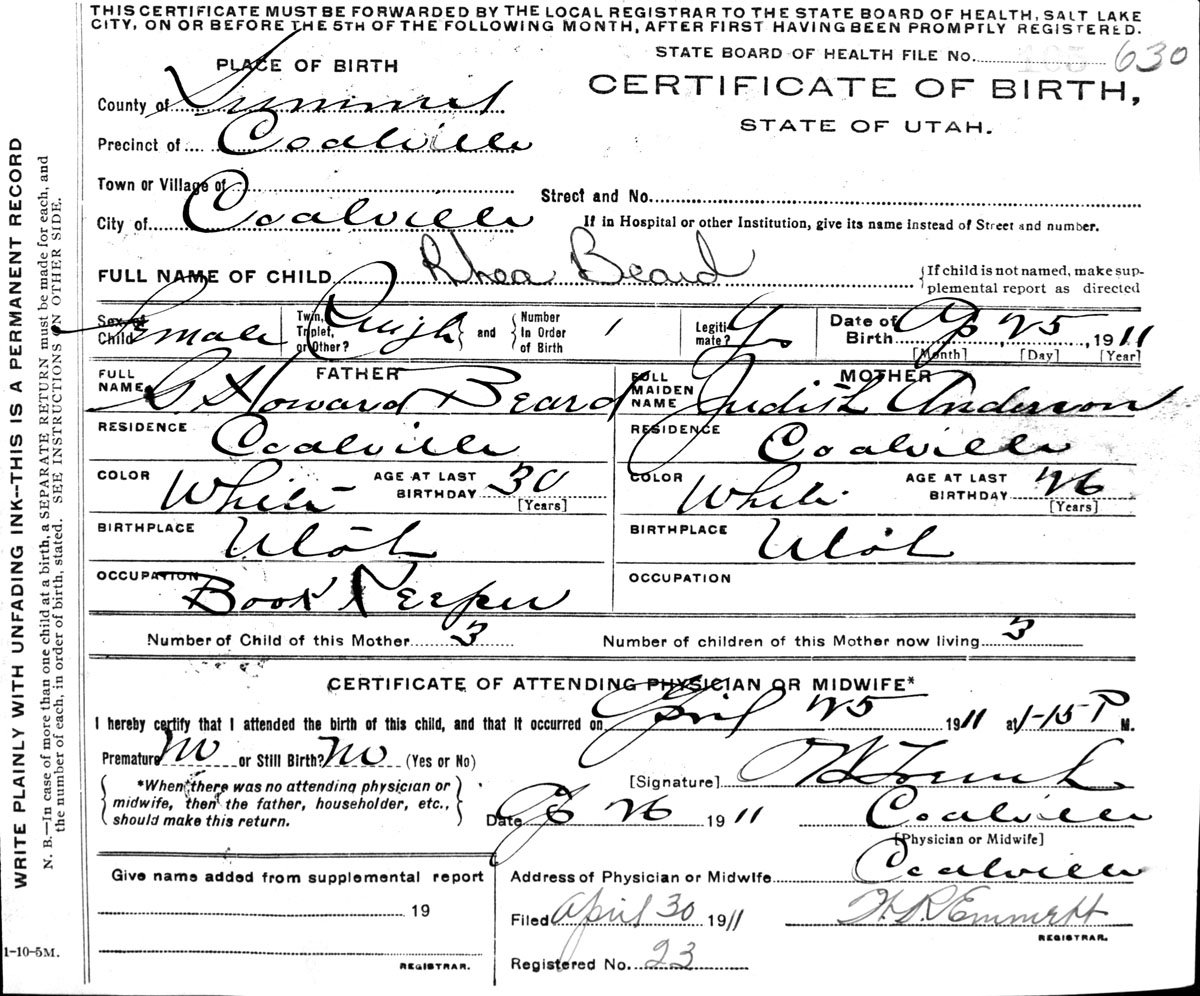 THIS CERTIFICATE MUST BE FORWARDED BY THE LOCAL REGISTRAR TO THE STATE BOARD OF HEALTH, SALT LAKE
CITY, ON OR BEFORE THE 5TH OF THE FOLLOWING MONTH, AFTER FIRST HAVING BEEN PROMPTLY REGISTERED.
STATE BOARD OF HEALTH FILE No. 630
PLACE OF BIRTH
CERTIFICATE OF BIRTH,
STATE OF UTAH.
County of Summit
Precinct of Coalville
Town or Village of
Street and No.
City of Coalville
If in Hospital or other Institution, give its name instead of Street and number.
FULL NAME OF CHILD Rhea Beard
If child is not named, make sup-
plemental report as directed
Sex of Child Female
Twin, Triplet, or Other? Single and Number In Order of Birth 1
Legiti-mate? Yes
Date of Birth Ap 25, 1911
[Month] [Day] [Year]
FATHER
FULL NAME G. Howard Beard
MOTHER
FULL MAIDEN NAME Judith Anderson
RESIDENCE Coalville
RESIDENCE Coalville
COLOR White AGE AT LAST BIRTHDAY 30 [Years]
COLOR White AGE AT LAST BIRTHDAY 26 [Years]
BIRTHPLACE Utah
BIRTHPLACE Utah
OCCUPATION Book Keeper
OCCUPATION
Number of Child of this Mother 3 Number of children of this Mother now living 3
CERTIFICATE OF ATTENDING PHYSICIAN OR MIDWIFE*
I hereby certify that I attended the birth of this child, and that it occurred on April 25 1911 at 1-15 P M.
Premature No or Still Birth? No (Yes or No)
*When there was no attending physician or
midwife, then the father, householder, etc.,
should make this return.
[Signature]
Date Ap 26 1911 Coalville
[Physician or Midwife]
Give name added from supplemental report
19
REGISTRAR.
Address of Physician or Midwife Coalville
Filed April 30 1911 H. R. Emmett
REGISTRAR.
Registered No. 23
1-10-5M.
WRITE PLAINLY WITH UNFADING INK--THIS IS A PERMANENT RECORD
N. B.—In case of more than one child at a birth, a SEPARATE RETURN must be made for each, and
the number of each, in order of birth, stated. SEE INSTRUCTIONS ON OTHER SIDE.